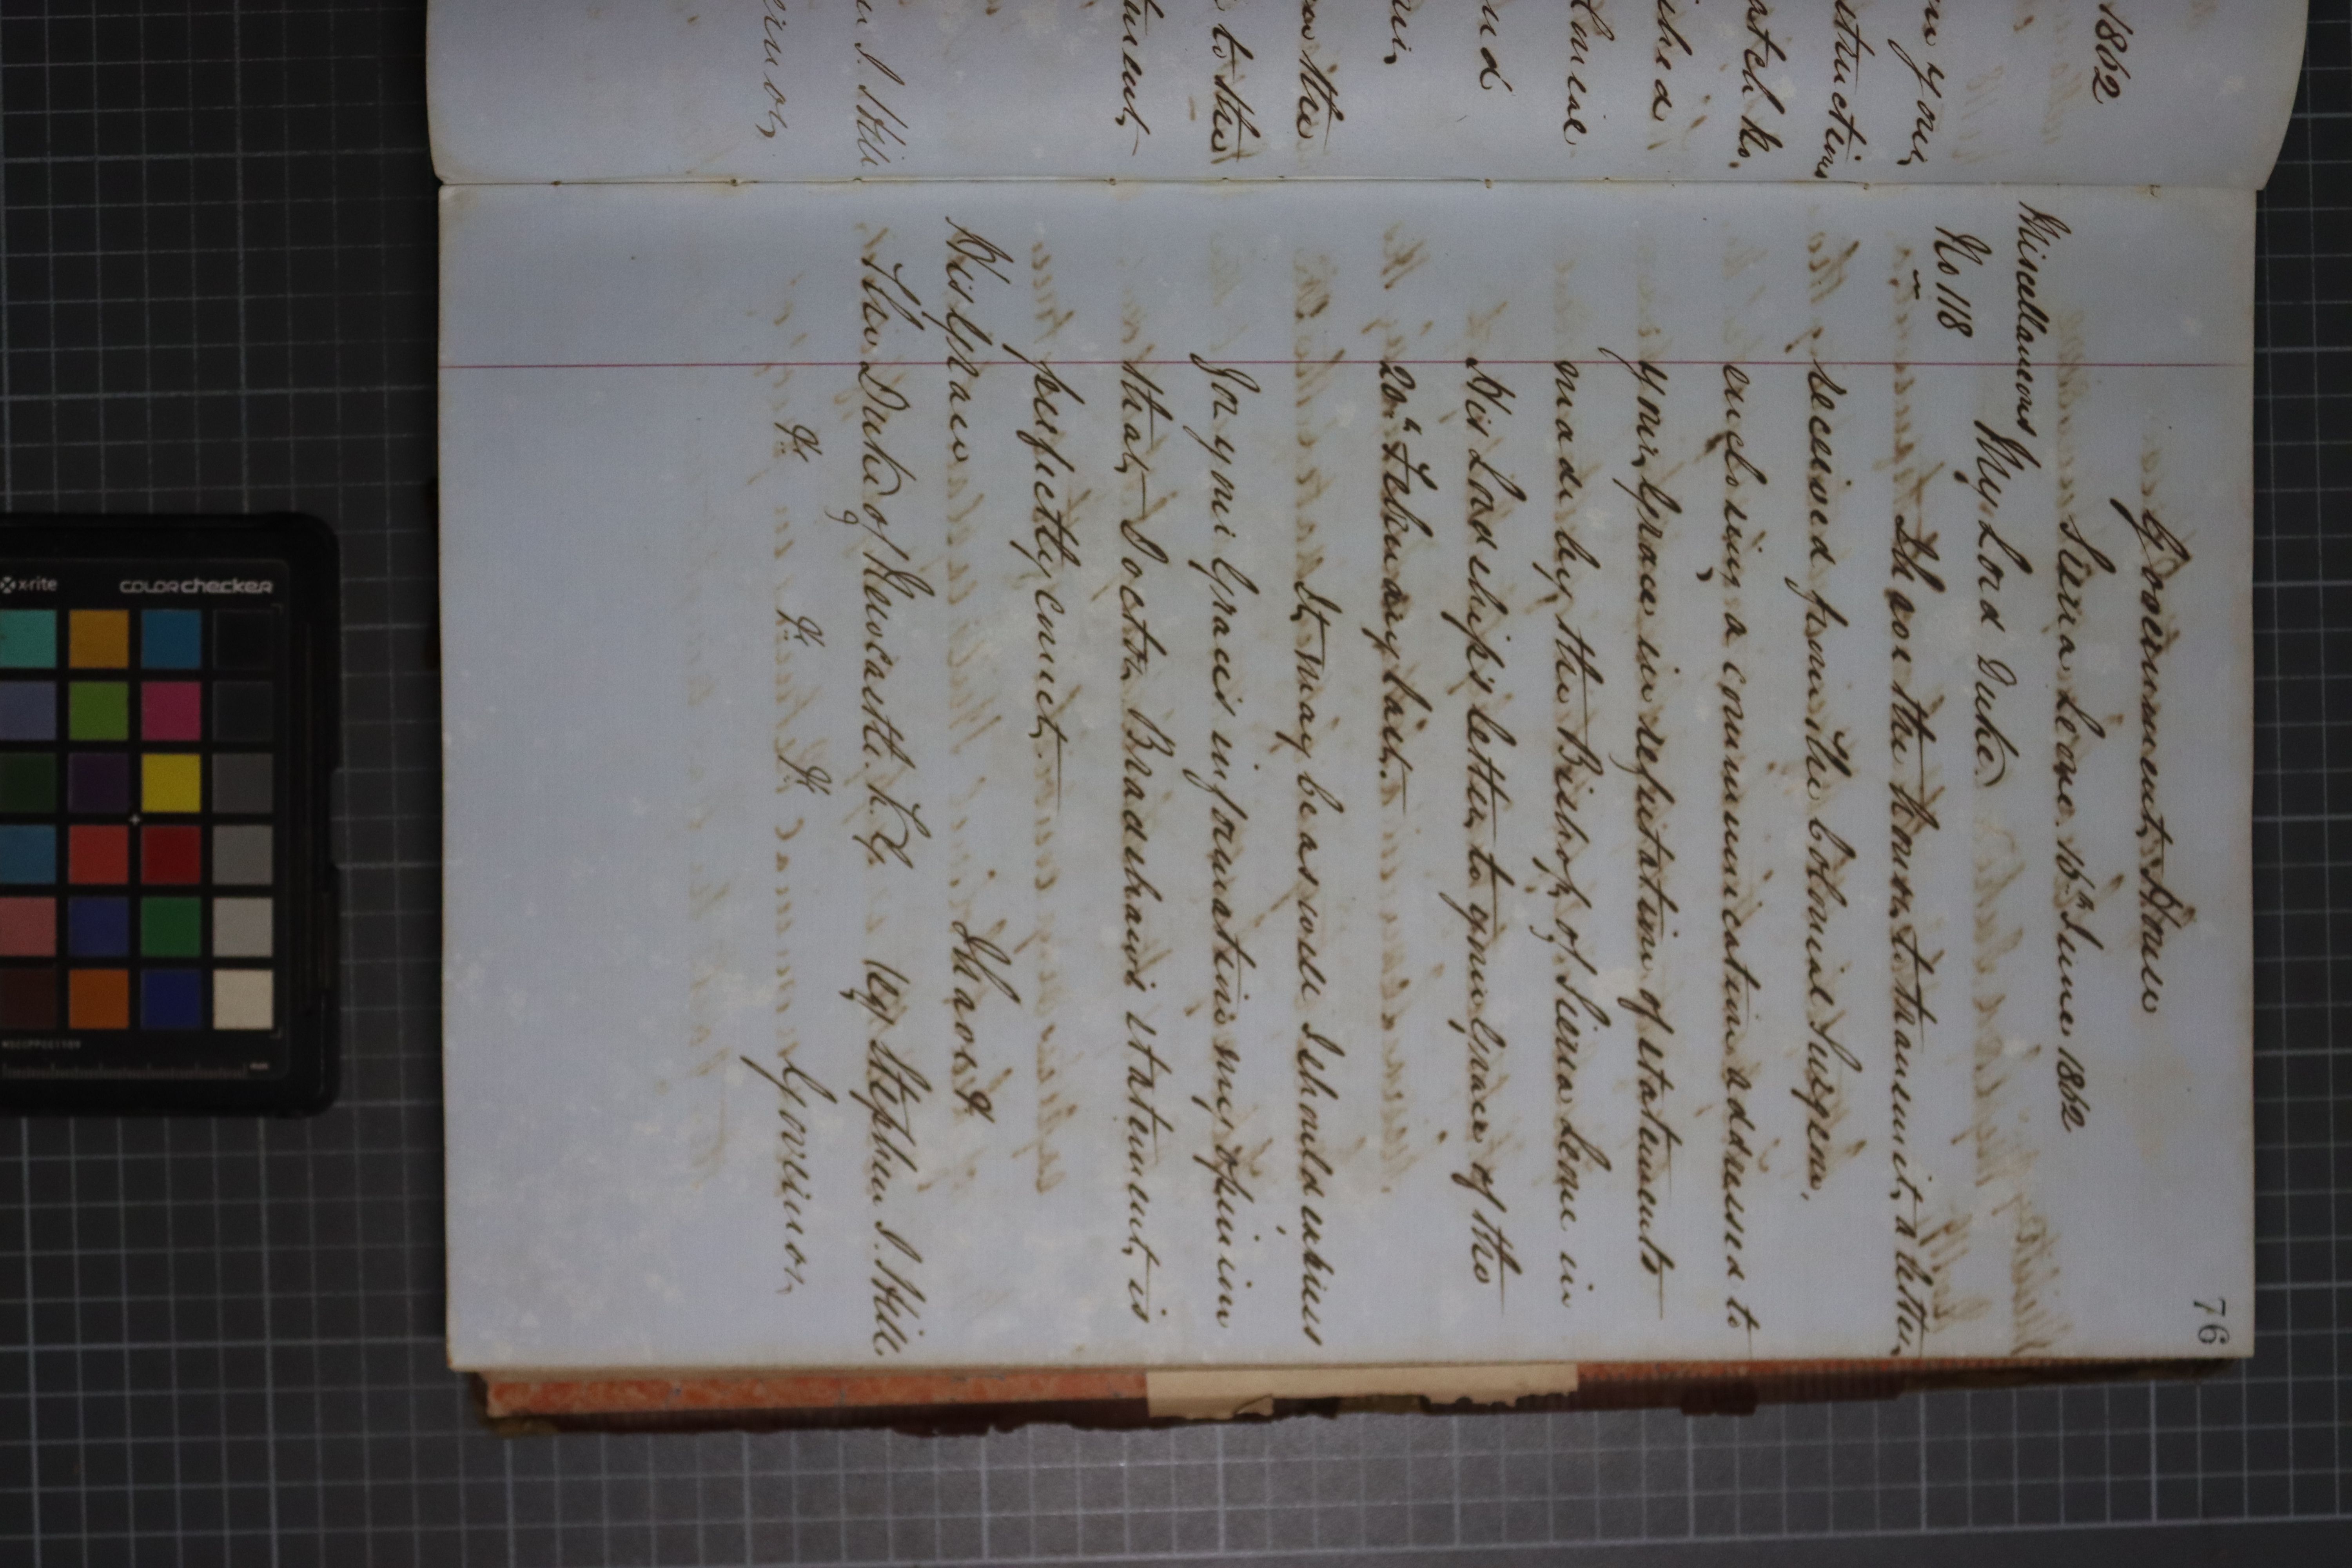 1862
your
structions
spatch No.
ished
and
on the
to the
S. Hill
76
Government House
Sierra Leone 16th June 1862
Miscellaneous
No 118
My Lord Duke
I have the honor to transmit a letter
received from the Colonial Surgeon,
enclosing a communication addressed to
your Grace in refutation of statements
made by the Bishop of Sierra Leone in
His Lordship's letter to your Grace of the
20th February last.
It may be as well I should express
for your Grace's information my opinion
that Doctor Bradshaws statement is
perfectly correct
I have &
His Grace
The Duke of Newcastle. K.G.
Sig Stephen J. Hill
& & &
Governor